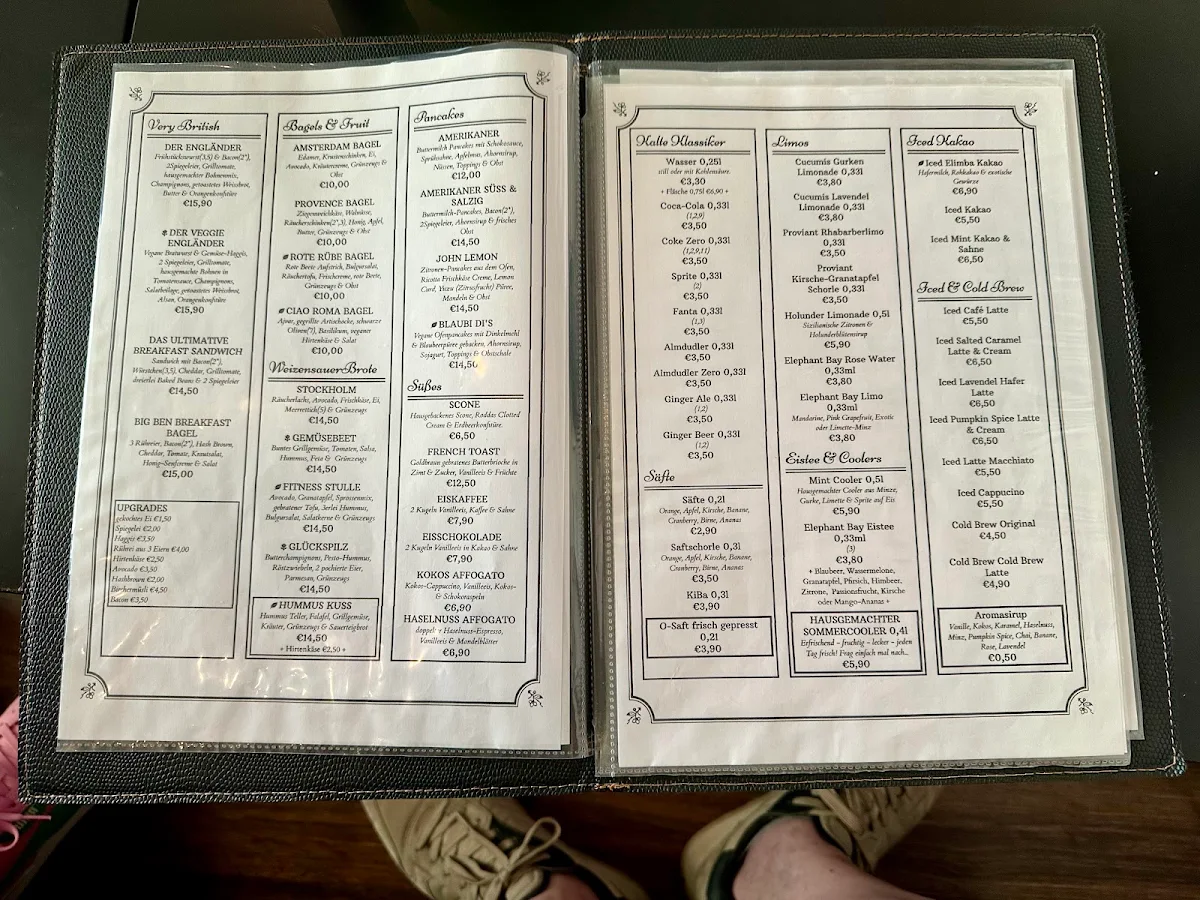 Very British
DER ENGLÄNDER
Frühstückswurst(3,5) & Bacon(2*),
2Spiegeleier, Grilltomate,
hausgemachter Bohnenmix,
Champignons, getoastetes Weissbrot,
Butter & Orangenkonfitüre
€15,90
DER VEGGIE
ENGLÄNDER
Vegane Bratwurst & Gemüse-Haggis,
2 Spiegeleier, Grilltomate,
hausgemachte Bohnen in
Tomatensauce, Champignons,
Salatbeilage, getoastetes Weissbrot,
Alsan, Orangenkonfitüre
€15,90
DAS ULTIMATIVE
BREAKFAST SANDWICH
Sandwich mit Bacon(2*),
Würstchen(3,5), Cheddar, Grilltomate,
dreierlei Baked Beans & 2 Spiegeleier
€14,50
BIG BEN BREAKFAST
BAGEL
3 Rühreier, Bacon(2*), Hash Brown,
Cheddar, Tomate, Krautsalat,
Honig-Senfcreme & Salat
€15,00
UPGRADES
gekochtes Ei €1,50
Spiegelei €2,00
Haggis €3,50
Rührei aus 3 Eiern €4,00
Hirtenkäse €2,50
Avocado €3,50
Hashbrown €2,00
Birchermüsli €4,50
Bacon €3,50
Bagels & Fruit
AMSTERDAM BAGEL
Edamer, Krustenschinken, Ei,
Avocado, Kräutercreme, Grünzeugs &
Obst
€10,00
PROVENCE BAGEL
Ziegenweichkäse, Walnüsse,
Räucherschinken(2*,3), Honig, Apfel,
Butter, Grünzeugs & Obst
€10,00
ROTE RÜBE BAGEL
Rote Beete Aufstrich, Bulgursalat,
Räuchertofu, Frischcreme, rote Beete,
Grünzeugs & Obst
€10,00
CIAO ROMA BAGEL
Ajvar, gegrillte Artischocke, schwarze
Oliven(7), Basilikum, veganer
Hirtenkäse & Salat
€10,00
Weizensauer Brote
STOCKHOLM
Räucherlachs, Avocado, Frischkäse, Ei,
Meerrettich(5) & Grünzeugs
€14,50
GEMÜSEBEET
Buntes Grillgemüse, Tomaten, Salsa,
Hummus, Feta & Grünzeugs
€14,50
FITNESS STULLE
Avocado, Granatapfel, Sprossenmix,
gebratener Tofu, 3erlei Hummus,
Bulgursalat, Salatkerne & Grünzeugs
€14,50
GLÜCKSPILZ
Butterchampignons, Pesto-Hummus,
Röstzwiebeln, 2 pochierte Eier,
Parmesan, Grünzeugs
€14,50
HUMMUS KUSS
Hummus Teller, Falafel, Grillgemüse,
Kräuter, Grünzeugs & Sauerteigbrot
€14,50
+ Hirtenkäse €2,50 +
Pancakes
AMERIKANER
Buttermilch Pancakes mit Schokosauce,
Sprühsahne, Apfelmus, Ahornsirup,
Nüssen, Toppings & Obst
€12,00
AMERIKANER SÜSS &
SALZIG
Buttermilch-Pancakes, Bacon(2*),
2Spiegeleier, Ahornsirup & frisches
Obst
€14,50
JOHN LEMON
Zitronen-Pancakes aus dem Ofen,
Ricotta Frischkäse Creme, Lemon
Curd, Yuzu (Zitrusfrucht) Püree,
Mandeln & Obst
€14,50
BLAUBI DI'S
Vegane Ofenpancakes mit Dinkelmehl
& Blaubeerpüree gebacken, Ahornsirup,
Sojagurt, Toppings & Obstschale
€14,50
Süßes
SCONE
Hausgebackenes Scone, Roddas Clotted
Cream & Erdbeerkonfitüre.
€6,50
FRENCH TOAST
Goldbraun gebratenes Butterbrioche in
Zimt & Zucker, Vanilleeis & Früchte
€12,50
EISKAFFEE
2 Kugeln Vanilleeis, Kaffee & Sahne
€7,90
EISSCHOKOLADE
2 Kugeln Vanilleeis in Kakao & Sahne
€7,90
KOKOS AFFOGATO
Kokos-Cappuccino, Vanilleeis, Kokos-
& Schokoraspeln
€6,90
HASELNUSS AFFOGATO
doppelter Haselnuss-Espresso,
Vanilleeis & Mandelblätter
€6,90
Kalte Klassiker
Wasser 0,25l
still oder mit Kohlensäure.
€3,30
+ Flasche 0,75l €6,90 +
Coca-Cola 0,33l
(1,2,9)
€3,50
Coke Zero 0,33l
(1,2,9,11)
€3,50
Sprite 0,33l
(2)
€3,50
Fanta 0,33l
(1,3)
€3,50
Almdudler 0,33l
€3,50
Almdudler Zero 0,33l
€3,50
Ginger Ale 0,33l
(1,2)
€3,50
Ginger Beer 0,33l
(1,2)
€3,50
Säfte
Säfte 0,2l
Orange, Apfel, Kirsche, Banane,
Cranberry, Birne, Ananas
€2,90
Saftschorle 0,3l
Orange, Apfel, Kirsche, Banane,
Cranberry, Birne, Ananas
€3,50
KiBa 0,3l
€3,90
O-Saft frisch gepresst
0,2l
€3,90
Limos
Cucumis Gurken
Limonade 0,33l
€3,80
Cucumis Lavendel
Limonade 0,33l
€3,80
Proviant Rhabarberlimo
0,33l
€3,50
Proviant
Kirsche-Granatapfel
Schorle 0,33l
€3,50
Holunder Limonade 0,5l
Sizilianische Zitronen &
Holunderblütensirup
€5,90
Elephant Bay Rose Water
0,33ml
€3,80
Elephant Bay Limo
0,33ml
Mandarine, Pink Grapefruit, Exotic
oder Limette-Minz
€3,80
Eistee & Coolers
Mint Cooler 0,5l
Hausgemachter Cooler aus Minze,
Gurke, Limette & Sprite auf Eis
€5,90
Elephant Bay Eistee
0,33ml
(3)
€3,80
+ Blaubeer, Wassermelone,
Granatapfel, Pfirsich, Himbeer,
Zitrone, Passionsfrucht, Kirsche
oder Mango-Ananas +
HAUSGEMACHTER
SOMMERCOOLER 0,4l
Erfrischend – fruchtig – lecker – jeden
Tag frisch! Frag einfach mal nach...
€5,90
Iced Kakao
Iced Elimba Kakao
Hafermilch, Rohkakao & exotische
Gewürze
€6,90
Iced Kakao
€5,50
Iced Mint Kakao &
Sahne
€6,50
Iced & Cold Brew
Iced Café Latte
€5,50
Iced Salted Caramel
Latte & Cream
€6,50
Iced Lavendel Hafer
Latte
€6,50
Iced Pumpkin Spice Latte
& Cream
€6,50
Iced Latte Macchiato
€5,50
Iced Cappucino
€5,50
Cold Brew Original
€4,50
Cold Brew Cold Brew
Latte
€4,90
Aromasirup
Vanille, Kokos, Karamel, Haselnuss,
Minz, Pumpkin Spice, Chai, Banane,
Rose, Lavendel
€0,50